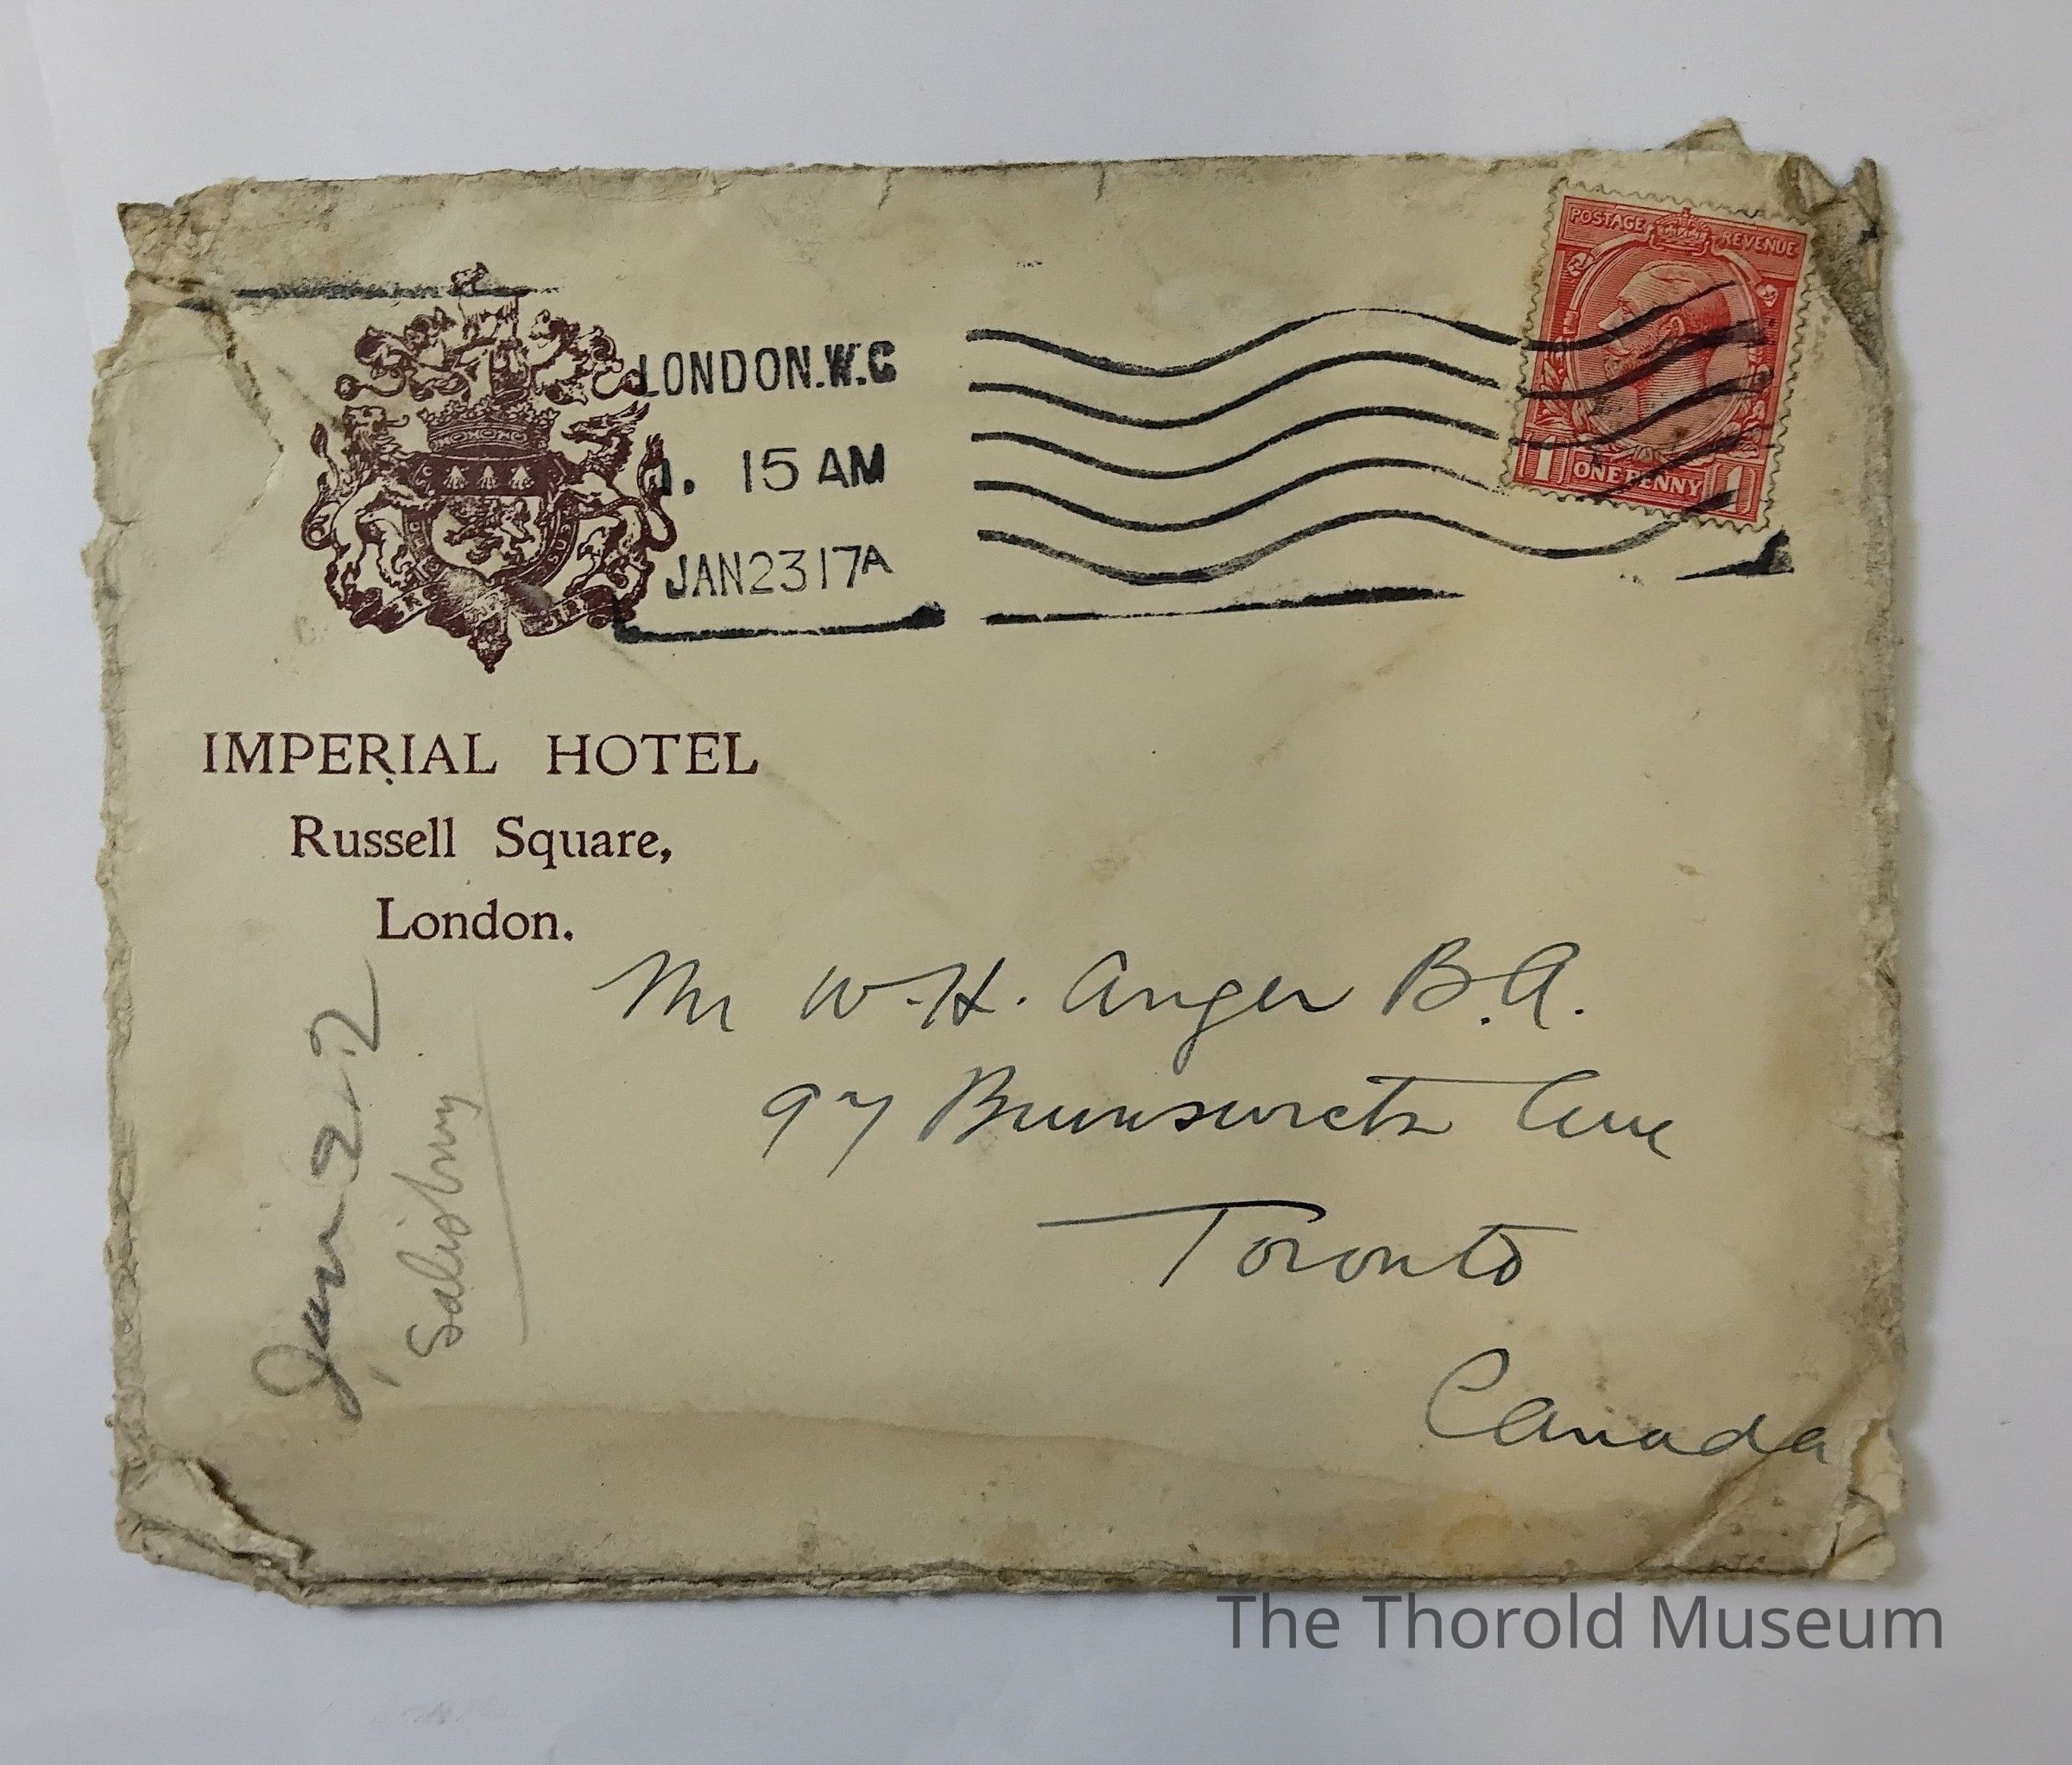 POSTAGE REVENUE
1 ONE PENNY 1
LONDON.W.C
1. 15 AM
JAN 23 17A
IMPERIAL HOTEL
Russell Square,
London.
Mr W.H. Anger B.A.
97 Brunswick Ave
Toronto
Canada
Jan 22
Salisbury
The Thorold Museum